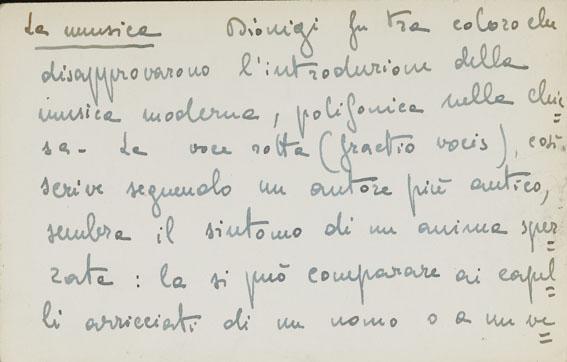 La musica Dionigi fu tra coloro che
disapprovarono l'introduzione della
musica moderna, polifonica nella chie=
sa- La voce rotta (fractio vocis), così
scrive seguendo un autore più antico,
sembra il sintomo di un anima spez=
zata: la si può comparare ai capel=
li arricciati di un uomo o a un ve=